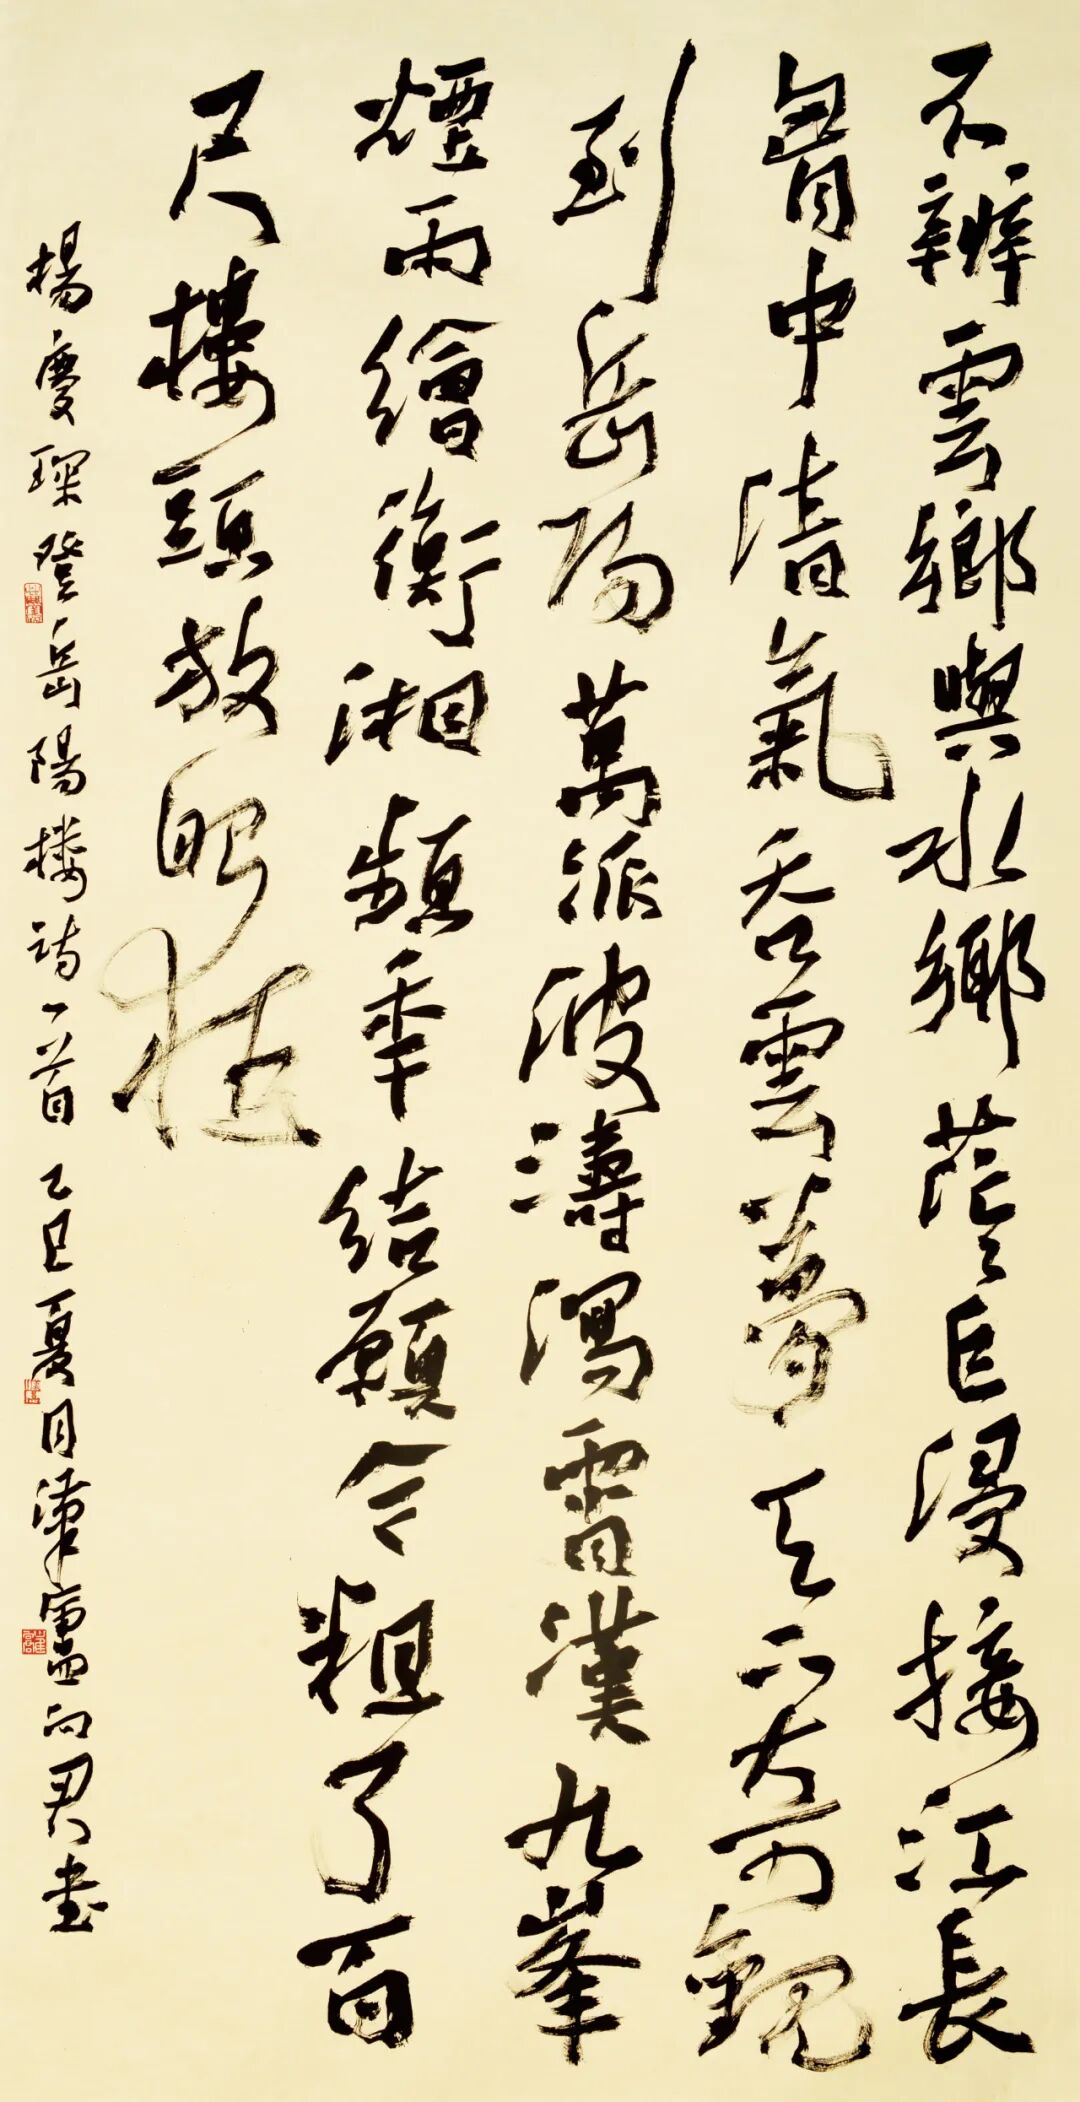 不辨雲鄉與水鄉茫々巨浸接江長
胷中清氣吞雲夢天下奇觀
到岳陽萬派波濤瀉霄漢九峯
煙雨繪衡湘頻年結願今粗了百
尺樓頭放眼狂
楊慶琛登岳陽楼詩一首 乙巳夏月 書